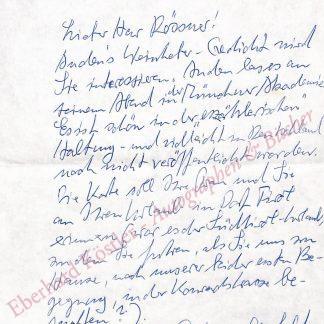 Lieber Herr Rössner!
Audens Weinheber-Gedicht wird
Sie interessieren. Auden las es an
seinem Abend in der Münchner Akademie.
Es ist schön in der erzählerischen
Haltung - und vielleicht in Deutschland
noch nicht veröffentlicht worden.
Die Karte soll Ihre und Sie
an Ihren in Port
erinnern war es der
zu dem Sie fuhren, als Sie uns zu
hause, nach unserer leider ersten Be-
gegnung, in der Konradstrasse be-
suchten?)
Eberhard Köstler Autographen & Bücher